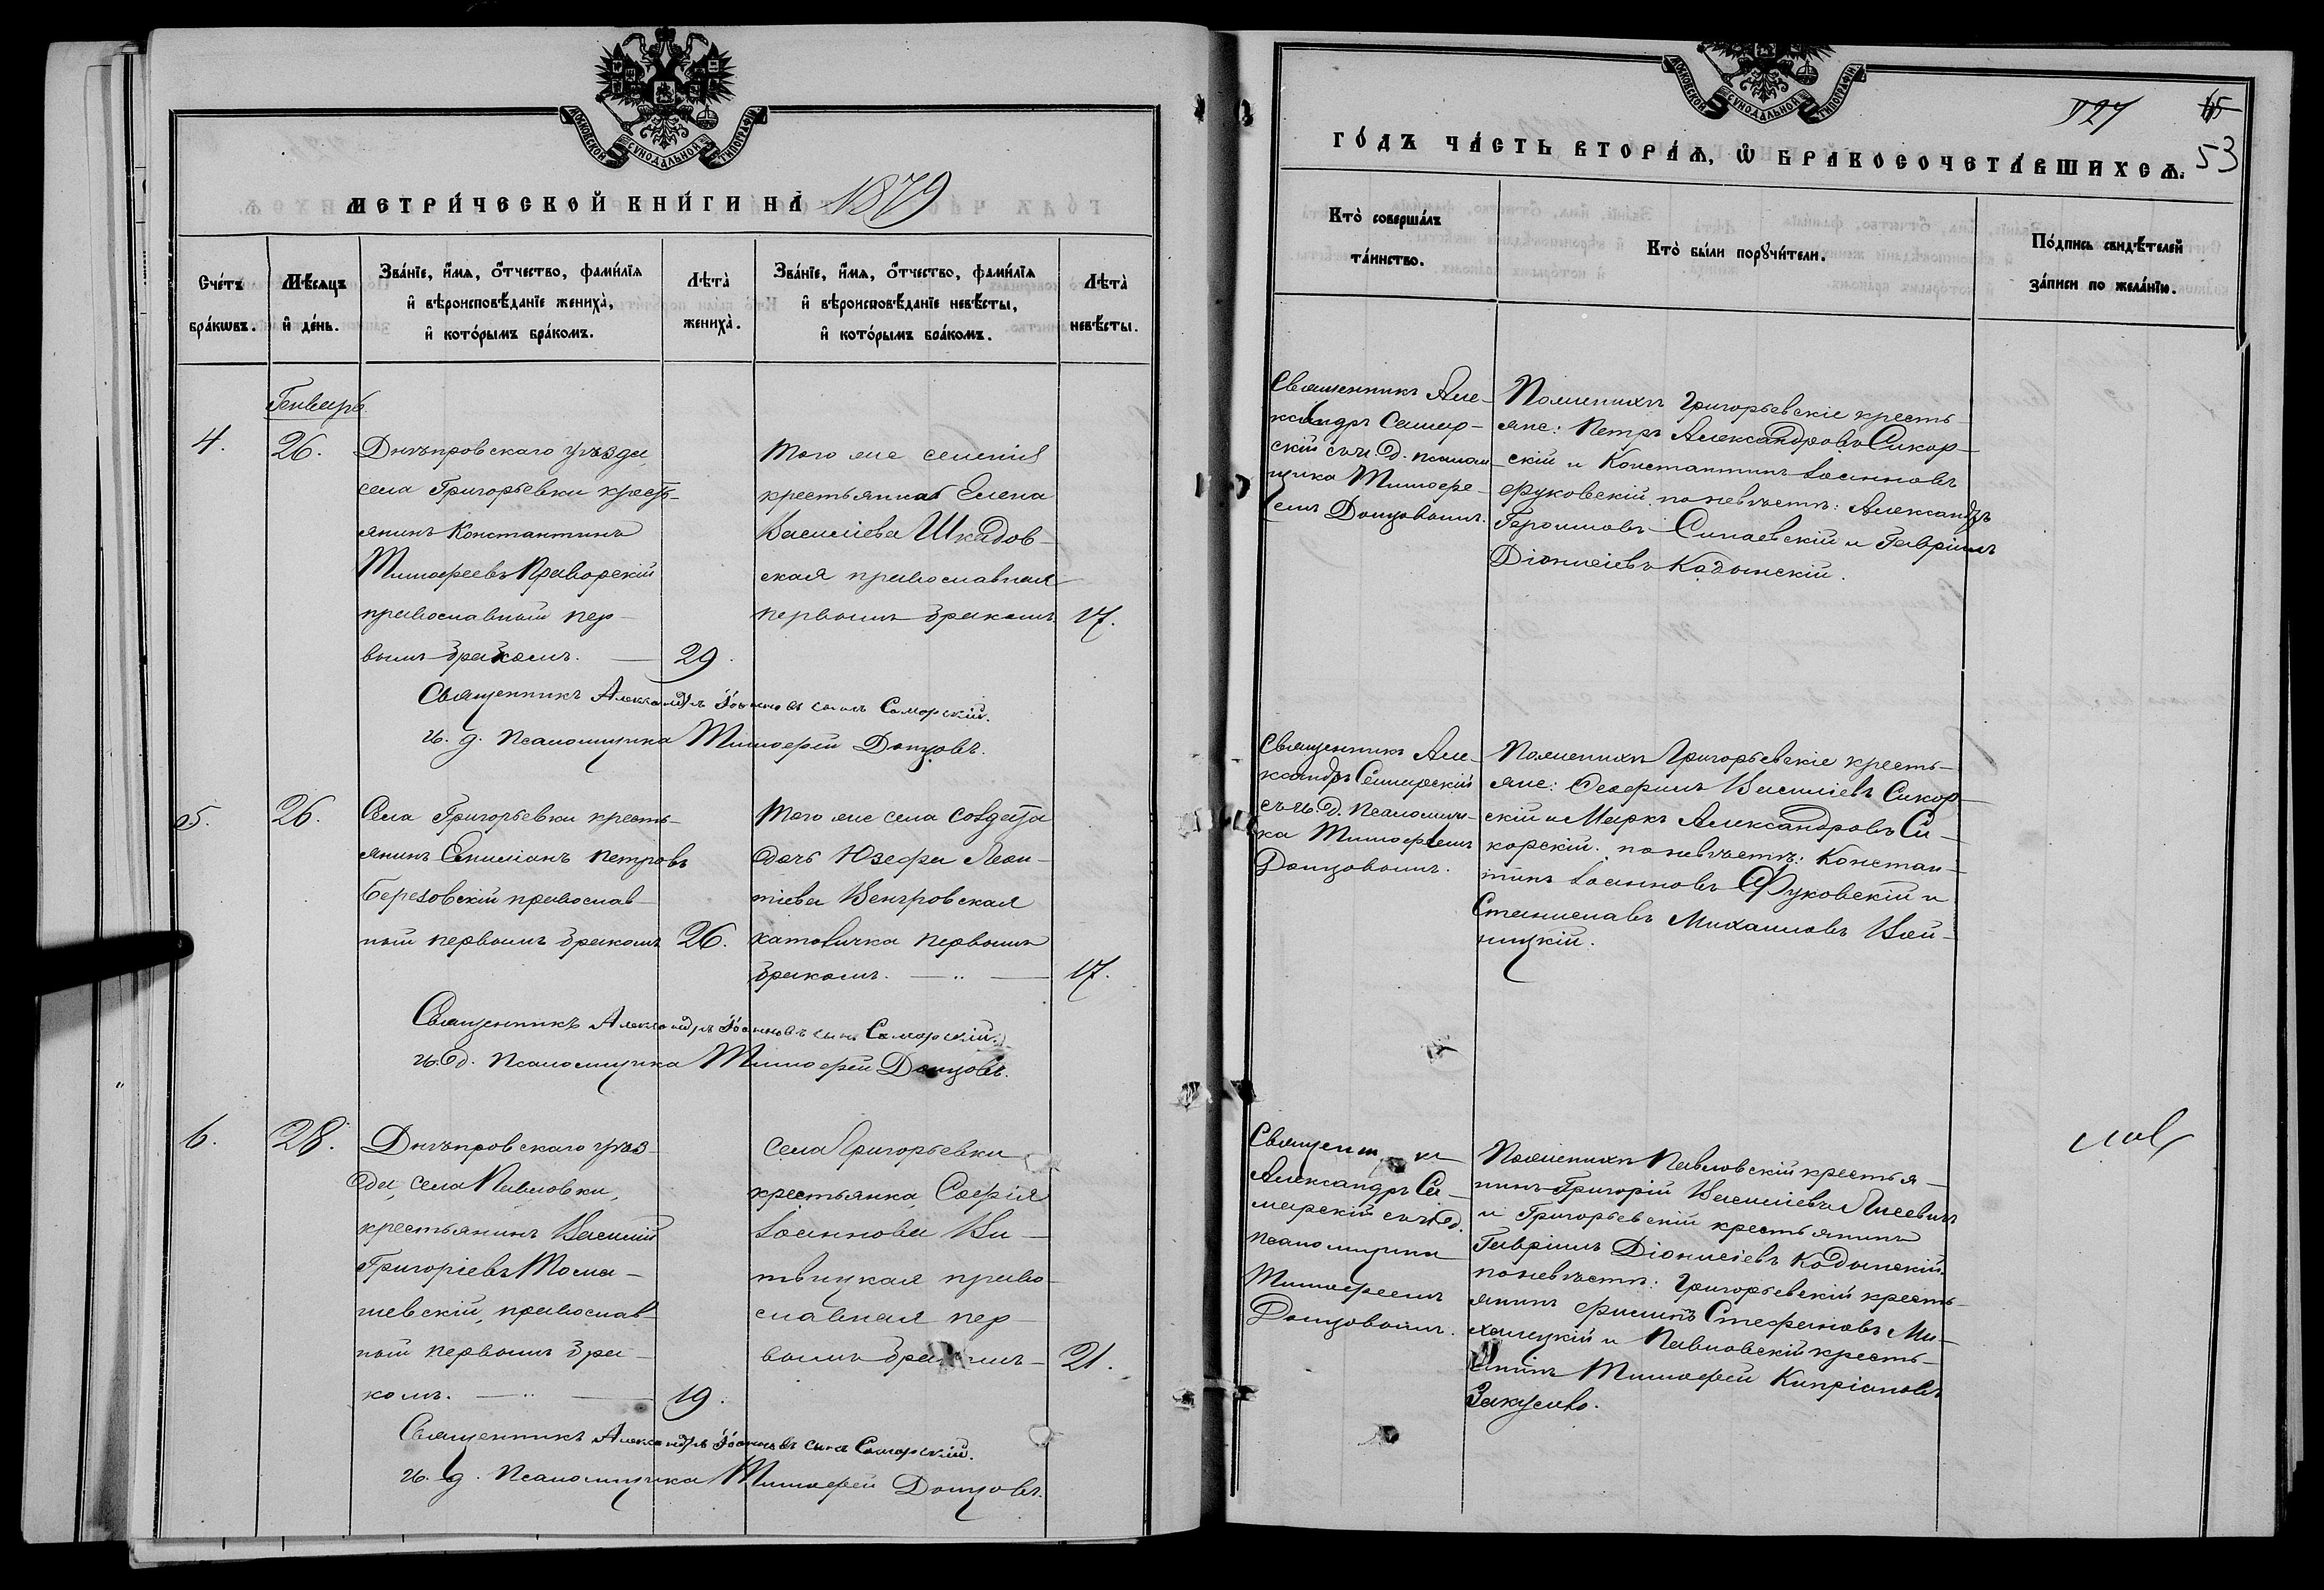 МОСКОВСКОЙ СѴНОДАЛЬНОЙ ТИПОГРАФІИ
МЕТРИ́ЧЕСКОЙ КНИ́ГИ НА̀ 1879
Сче́тъ бра́кѡвъ.
Мѣ́сяцъ и҆ де́нь.
Зва́нїе, и҆́мѧ, ѻ҆́тчество, фами́лїѧ
и҆ вѣроисповѣ́данїе жениха̀,
и҆ кото́рымъ бра́комъ.
Лѣта̀ жениха̀.
Зва́нїе, и҆́мѧ, ѻ҆́тчество, фами́лїѧ
и҆ вѣроисповѣ́данїе невѣ́сты,
и҆ кото́рымъ бра́комъ.
Лѣта̀ невѣ́сты.
Генварь
4.
26.
Днѣпровскаго уѣзда,
села Григорьевки кресть-
янинъ Константинъ
Тимофеевъ Праворскій
православный пер-
вымъ бракомъ. —
29.
Того же селенія
крестьянка Елена
Василіева Шкадов-
ская православная
первымъ бракомъ
17.
Священникъ Александръ Іоанновъ сынъ Саморскій.
И. д. Псаломщика Тимофей Донцовъ.
5.
26.
Села Григорьевки кресть-
янинъ Петровъ
Березовскій православ-
ный первымъ бракомъ
26.
Того же села солдата
дочь Юзефа Леон-
тіева Венгровская
католичка первымъ
бракомъ. — „ —
17.
Священникъ Александръ Іоанновъ сынъ Саморскій.
И. д. Псаломщика Тимофей Донцовъ.
6.
28.
Днѣпровскаго уѣз-
да, села Павловки,
крестьянинъ Василій
Григоріевъ Тома-
шевскій, православ-
ный первымъ бра-
комъ. — „ —
19.
Села Григорьевки
крестьянка, Софія
Іоаннова Ви-
твицкая право-
славная пер-
вымъ бракомъ —
21.
Священникъ Александръ Іоанновъ сынъ Саморскій.
И. д. Псаломщика Тимофей Донцовъ.
МОСКОВСКОЙ СѴНОДАЛЬНОЙ ТИПОГРАФІИ
53
ГО́ДЪ ЧА́СТЬ ВТОРА́Ѧ, Ѽ БРАКОСОЧЕТА́ВШИХСѦ.
Кто̀ соверша́лъ та́инство.
Кто̀ бы́ли порꙋчи́тели.
По́дпись свидѣ́телей за́писи по жела́нїю.
Священникъ Але-
ксандръ Самор-
скій съ и. д. псалом-
щика Тимофе-
емъ Донцовымъ.
По женихѣ Григорьевскіе кресть-
яне: Петръ Александровъ Сикор-
скій и Константинъ Іоанновъ
Фуковскій по невѣстѣ: Александръ
Синаевскій и Гавріилъ
Діонисіевъ Кадынскій.
Священникъ Але-
ксандръ Саморскій
съ и. д. Псаломщи-
ка Тимофеемъ
Донцовымъ.
По женихѣ Григорьевскіе кресть-
яне: Василіевъ Сикор-
скій и Маркъ Александровъ Си-
корскій. по невѣстѣ: Констан-
тинъ Іоанновъ Фуковскій и
Станиславъ Михаиловъ Вой-
ницкій.
Священникъ
Александръ Са-
морскій съ и. д.
псаломщика
Тимофеемъ
Донцовымъ.
По женихѣ Павловскій крестья-
нинъ Григорій Василіевъ
и Григорьевскій крестьянинъ
Гавріилъ Діонисіевъ Кадынскій
по невѣстѣ: Григорьевскій кресть-
янинъ Стефановъ Ми-
халецкій и Павловскій кресть-
янинъ Тимофей Кипріановъ